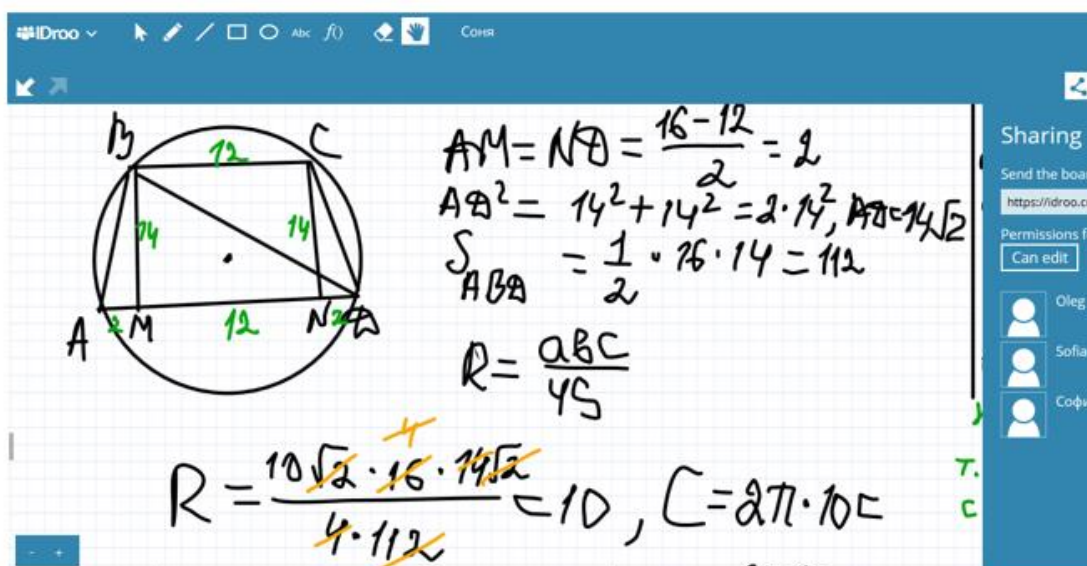 IDroo Abc f() Соня
B 12 C
14 14
A 2 M 12 N 2 D
AM = ND = (16-12)/2 = 2
AD² = 14² + 14² = 2·14², AD=14√2
S ABD = 1/2 · 16 · 14 = 112
R = abc/4S
4
R = (10√2 · 16 · 14√2)/(4·112) = 10, C = 2π·10 =
Sharing
Send the boar
https://idroo.c
Permissions f
Can edit
Oleg
Sofia
Софи
т.
с
- +